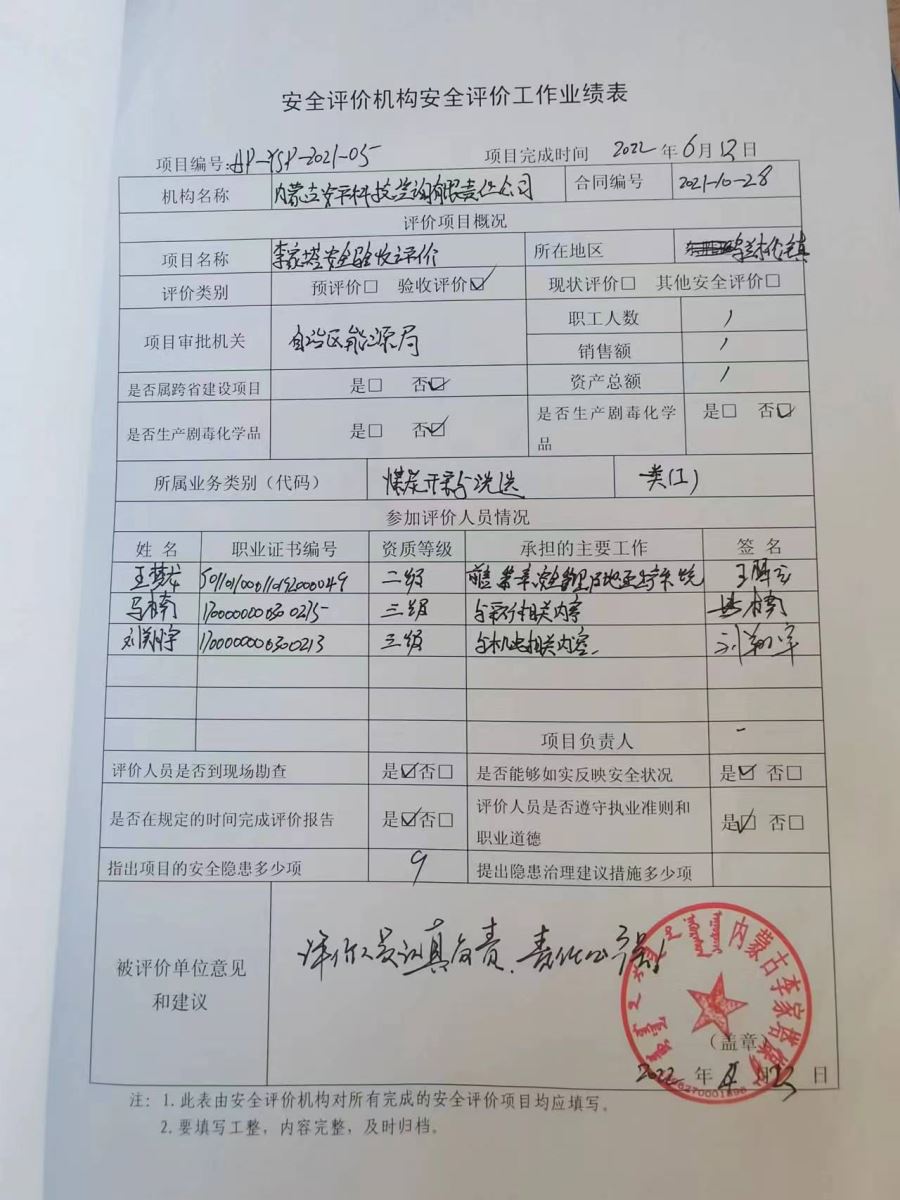 安全评价机构安全评价工作业绩表
项目编号:AP-YSP-2021-05 项目完成时间 2022 年 6 月 12 日
机构名称 内蒙古安平科技咨询有限责任公司 合同编号 2021-10-28
评价项目概况
项目名称 李家塔安全验收评价 所在地区 乌兰木伦镇
评价类别 预评价□ 验收评价☑ 现状评价□ 其他安全评价□
项目审批机关 自治区能源局 职工人数 /
销售额 /
是否属跨省建设项目 是□ 否☑ 资产总额 /
是否生产剧毒化学品 是□ 否☑ 是否生产剧毒化学品 是□ 否☑
所属业务类别（代码） 煤炭开采与洗选 类(1)
参加评价人员情况
姓 名 职业证书编号 资质等级 承担的主要工作 签 名
王慧龙 二级
马楠 1700000000300215 三级 与采矿相关内容 马楠
刘翔宇 1700000000300213 三级 与机电相关内容. 刘翔宇
项目负责人 -
评价人员是否到现场勘查 是☑否□ 是否能够如实反映安全状况 是☑ 否□
是否在规定的时间完成评价报告 是☑否□ 评价人员是否遵守执业准则和职业道德 是☑ 否□
指出项目的安全隐患多少项 9 提出隐患治理建议措施多少项
被评价单位意见和建议
评价人员认真负责、责任心强!
内蒙古李家塔
（盖章）
2022 年 月 日
注：1.此表由安全评价机构对所有完成的安全评价项目均应填写。
2.要填写工整，内容完整，及时归档。